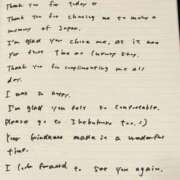 Thank you for today
Thank you for choosing me to make a
memory of Japan.
I'm glad you chose me, as it was
your first time as luxury stay.
Thank you for complimenting me all
day.
I was so happy.
I'm glad you felt so comfortable.
Please go to Ikebukuro too. :)
Your kindness made is a wonderful
time.
I look forward to see you again.